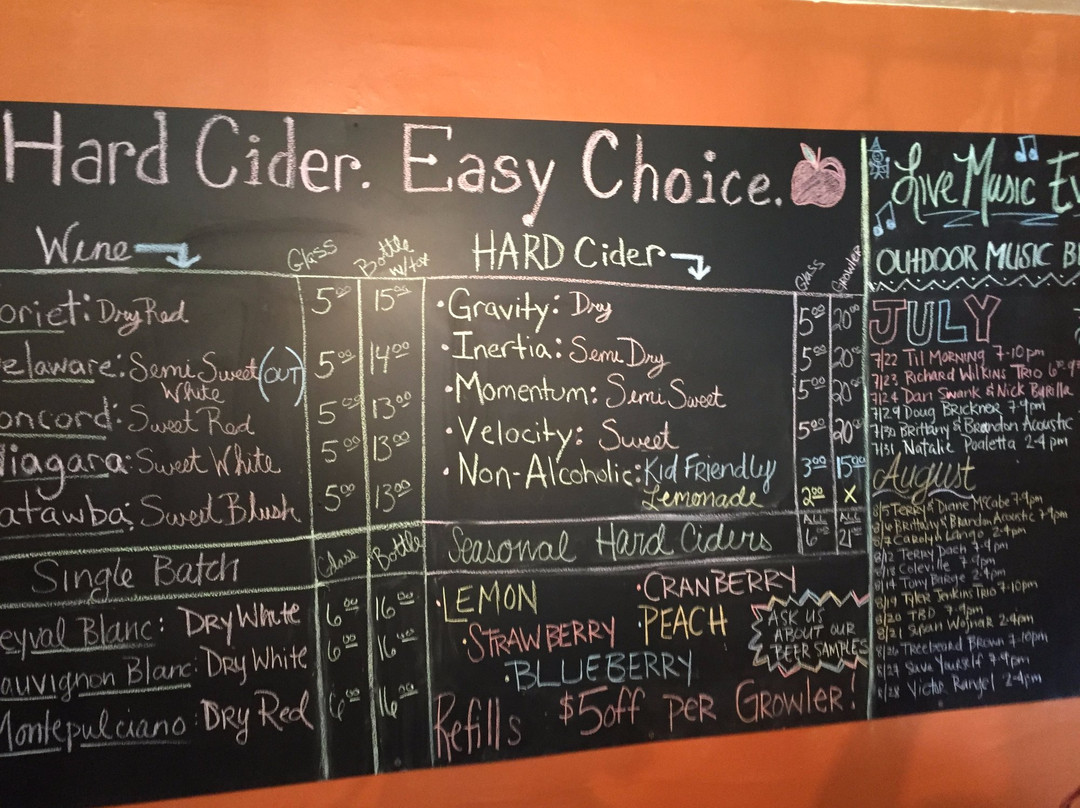 Hard Cider. Easy Choice.
Wine Glass Bottle w/tax
oriet: Dry Red 5.00 15.00
elaware: Semi Sweet White (OUT) 5.00 14.00
oncord: Sweet Red 5.00 13.00
Niagara: Sweet White 5.00 13.00
atawba: Sweet Blush 5.00 13.00
Single Batch Glass Bottle
eyval Blanc: Dry White 6.00 16.00
auvignon Blanc: Dry White 6.00 16.00
Montepulciano: Dry Red 6.00 16.00
HARD Cider Glass Growler
·Gravity: Dry 5.00 20.00
·Inertia: Semi Dry 5.00 20.00
·Momentum: Semi Sweet 5.00 20.00
·Velocity: Sweet 5.00 20.00
·Non-Alcoholic: Kid Friendly 3.00 15.00
Lemonade 2.00 X
Seasonal Hard Ciders ALL 6.00 ALL 21.00
·LEMON
·CRANBERRY
·STRAWBERRY
·PEACH
·BLUEBERRY
ASK US
ABOUT OUR
BEER SAMPLES
Refills $5 off per Growler!
Live Music Ev
OUHDOOR MUSIC B
JULY
7/22 Til MORNING 7-10pm
7/23 Richard Wilkins Trio
7/24 Dan Swank & Nick
7/29 Doug Brickner 7-9pm
7/30 Brittany & Brandon Acoustic
7/31 Natalie Poaletta 2-4 pm
August
8/5 Terry & Diane McCabe 7-9pm
8/6 Brittany & Brandon Acoustic 7-9pm
8/7 Carolyn Lango 2-4pm
8/12 Terry Dach 7-9pm
Coleville 7-9pm
8/14 Tony Barge 2-4pm
8/19 Tyler Jenkins Trio 7-10pm
8/20 TBD 7-9pm
8/21 Susan Wojnar 2-4pm
8/26 Treebeard Brown 7-10pm
Save Yourself 7-9pm
8/28 Victor Rangel 2-4pm